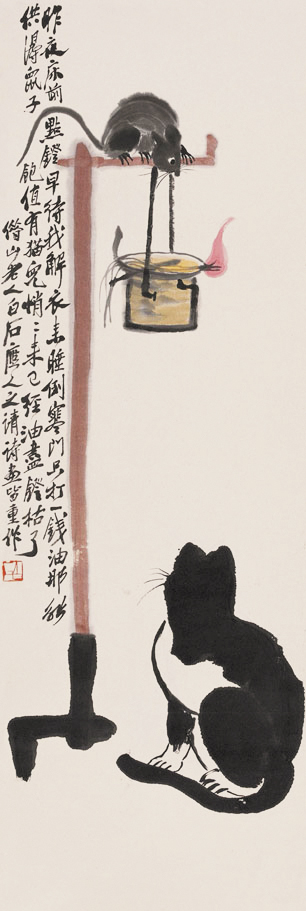 昨夜床前點鐙早待我解衣来睡倒寒門只打一錢油那能
供得鼠子飽值有猫兒悄々来已經油盡鐙枯了
借山老人白石應人之請詩畫皆重作